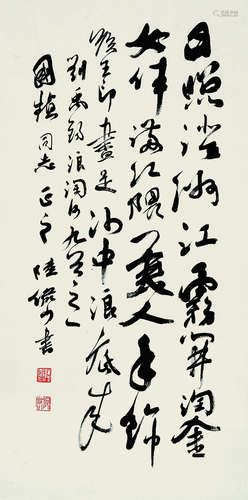 日照澄洲江霧開淘金
女伴滿江隈美人首飾
侯王印盡是沙中浪底来
劉禹錫浪淘沙九首之一
國楨同志正之 陸儼少書